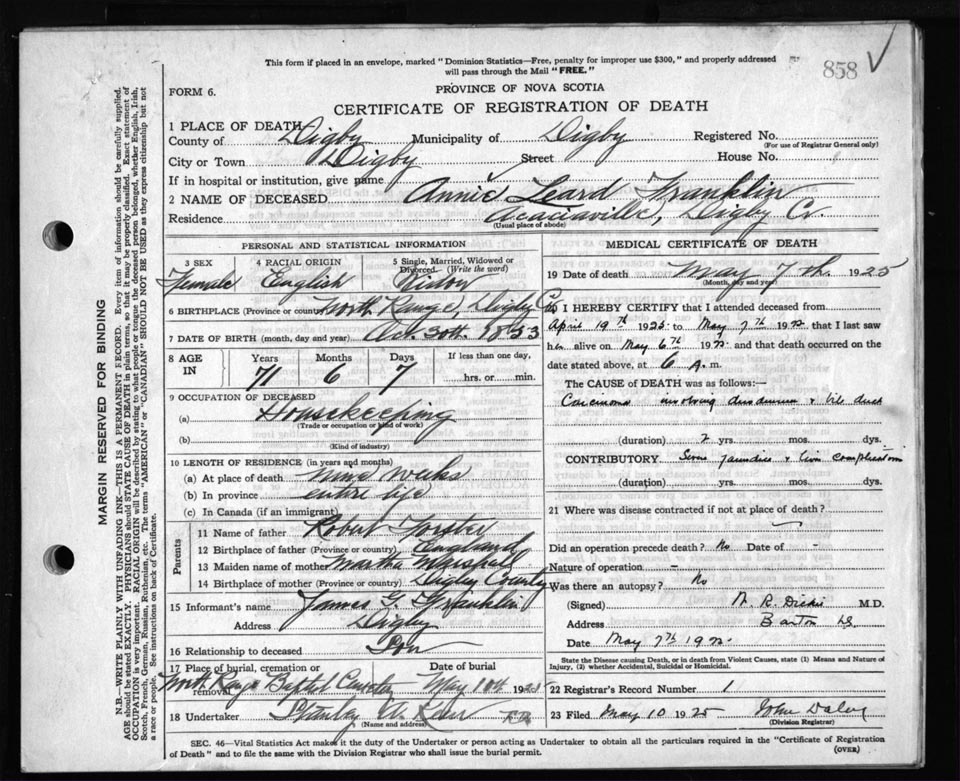 This form if placed in an envelope, marked "Dominion Statistics—Free, penalty for improper use $300," and properly addressed
will pass through the Mail "FREE."
858 ✓
FORM 6.
PROVINCE OF NOVA SCOTIA
CERTIFICATE OF REGISTRATION OF DEATH
1 PLACE OF DEATH
County of Digby Municipality of Digby Registered No.
(For use of Registrar General only)
City or Town Digby Street House No.
If in hospital or institution, give name
2 NAME OF DECEASED Annie Leard Franklin
Residence Acaciaville, Digby Co.
(Usual place of abode)
PERSONAL AND STATISTICAL INFORMATION
3 SEX 4 RACIAL ORIGIN 5 Single, Married, Widowed or Divorced (Write the word)
Female English Widow
6 BIRTHPLACE (Province or country) North Range, Digby Co
7 DATE OF BIRTH (month, day and year) Oct. 30th. 1853
8 AGE IN Years Months Days If less than one day,
71 6 7 hrs. or min.
9 OCCUPATION OF DECEASED
(a) Housekeeping
(Trade or occupation or kind of work)
(b)
(Kind of industry)
10 LENGTH OF RESIDENCE (in years and months)
(a) At place of death nine weeks
(b) In province entire life
(c) In Canada (if an immigrant)
Parents
11 Name of father Robert Forster
12 Birthplace of father (Province or country) England
13 Maiden name of mother Martha
14 Birthplace of mother (Province or country) Digby County
15 Informant's name James Franklin
Address Digby
16 Relationship to deceased Son
17 Place of burial, cremation or removal Date of burial
North Range Baptist Cemetery May 10th 1925
18 Undertaker Stanley
(Name and address)
MEDICAL CERTIFICATE OF DEATH
19 Date of death May 7th. 1925
(Month, day and year)
20 I HEREBY CERTIFY that I attended deceased from
April 19th 1925 to May 7th 1925 that I last saw
her alive on May 6th 1925 and that death occurred on the
date stated above, at 6 A. m.
The CAUSE of DEATH was as follows:—
Carcinoma involving duodenum & bile duct
(duration) 2 yrs. mos. dys.
CONTRIBUTORY Severe jaundice & liver complications
(duration) yrs. mos. dys.
21 Where was disease contracted if not at place of death?
Did an operation precede death? No Date of -
Nature of operation -
Was there an autopsy? No
(Signed) R. Dickie M.D.
Address Barton
Date May 7th 1925
State the Disease causing Death, or in death from Violent Causes, state (1) Means and Nature of
Injury, (2) whether Accidental, Suicidal or Homicidal.
22 Registrar's Record Number 1
23 Filed May 10 1925 John Daley
(Division Registrar)
SEC. 46—Vital Statistics Act makes it the duty of the Undertaker or person acting as Undertaker to obtain all the particulars required in the "Certificate of Registration
of Death" and to file the same with the Division Registrar who shall issue the burial permit.
(OVER)
MARGIN RESERVED FOR BINDING
N.B.—WRITE PLAINLY WITH UNFADING INK—THIS IS A PERMANENT RECORD. Every item of information should be carefully supplied.
AGE should be stated EXACTLY. PHYSICIANS should STATE CAUSE OF DEATH in plain terms, so that it may be properly classified. Exact statement of
OCCUPATION is very important. RACIAL ORIGIN will be described by stating to what people or tongue the deceased person belonged, whether English, Irish,
Scotch, French, German, Russian, Ruthenian, etc. The terms "AMERICAN" or "CANADIAN" SHOULD NOT BE USED as they express citizenship but not
a race or people. See instructions on back of Certificate.